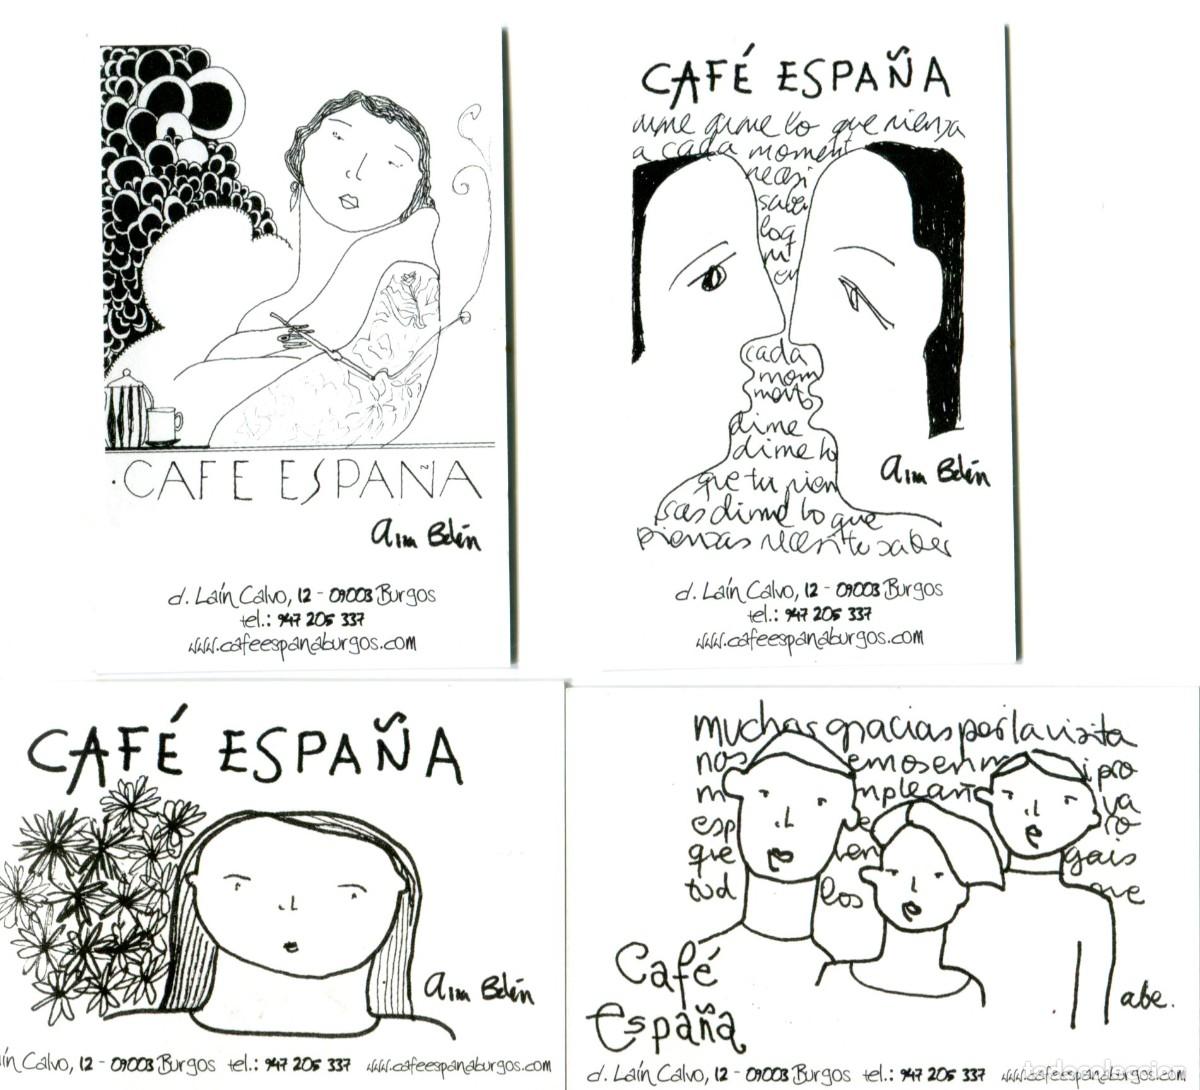 CAFE ESPAÑA
Ana Belén
d. Laín Calvo, 12 - 09003 Burgos
tel.: 947 205 337
www.cafeespanaburgos.com
CAFÉ ESPAÑA
dime dime lo que piensa
a cada moment
neces
saber
loq
cada
mom
mento
dime
dime lo
que tu pien
sas dime lo que
piensas necesito saber
Ana Belén
d. Laín Calvo, 12 - 09003 Burgos
tel.: 947 205 337
www.cafeespanaburgos.com
CAFÉ ESPAÑA
Ana Belén
ín Calvo, 12 - 09003 Burgos tel.: 947 205 337 www.cafeespanaburgos.com
muchas gracias por la visita
nos emos en m i pro
m mpleaño va
esp ro
que gais
tud los que
Café
España
abe.
d. Laín Calvo, 12 - 09003 Burgos tel.: 947 205 337 www.cafeespanaburgos.com
todocoleccion